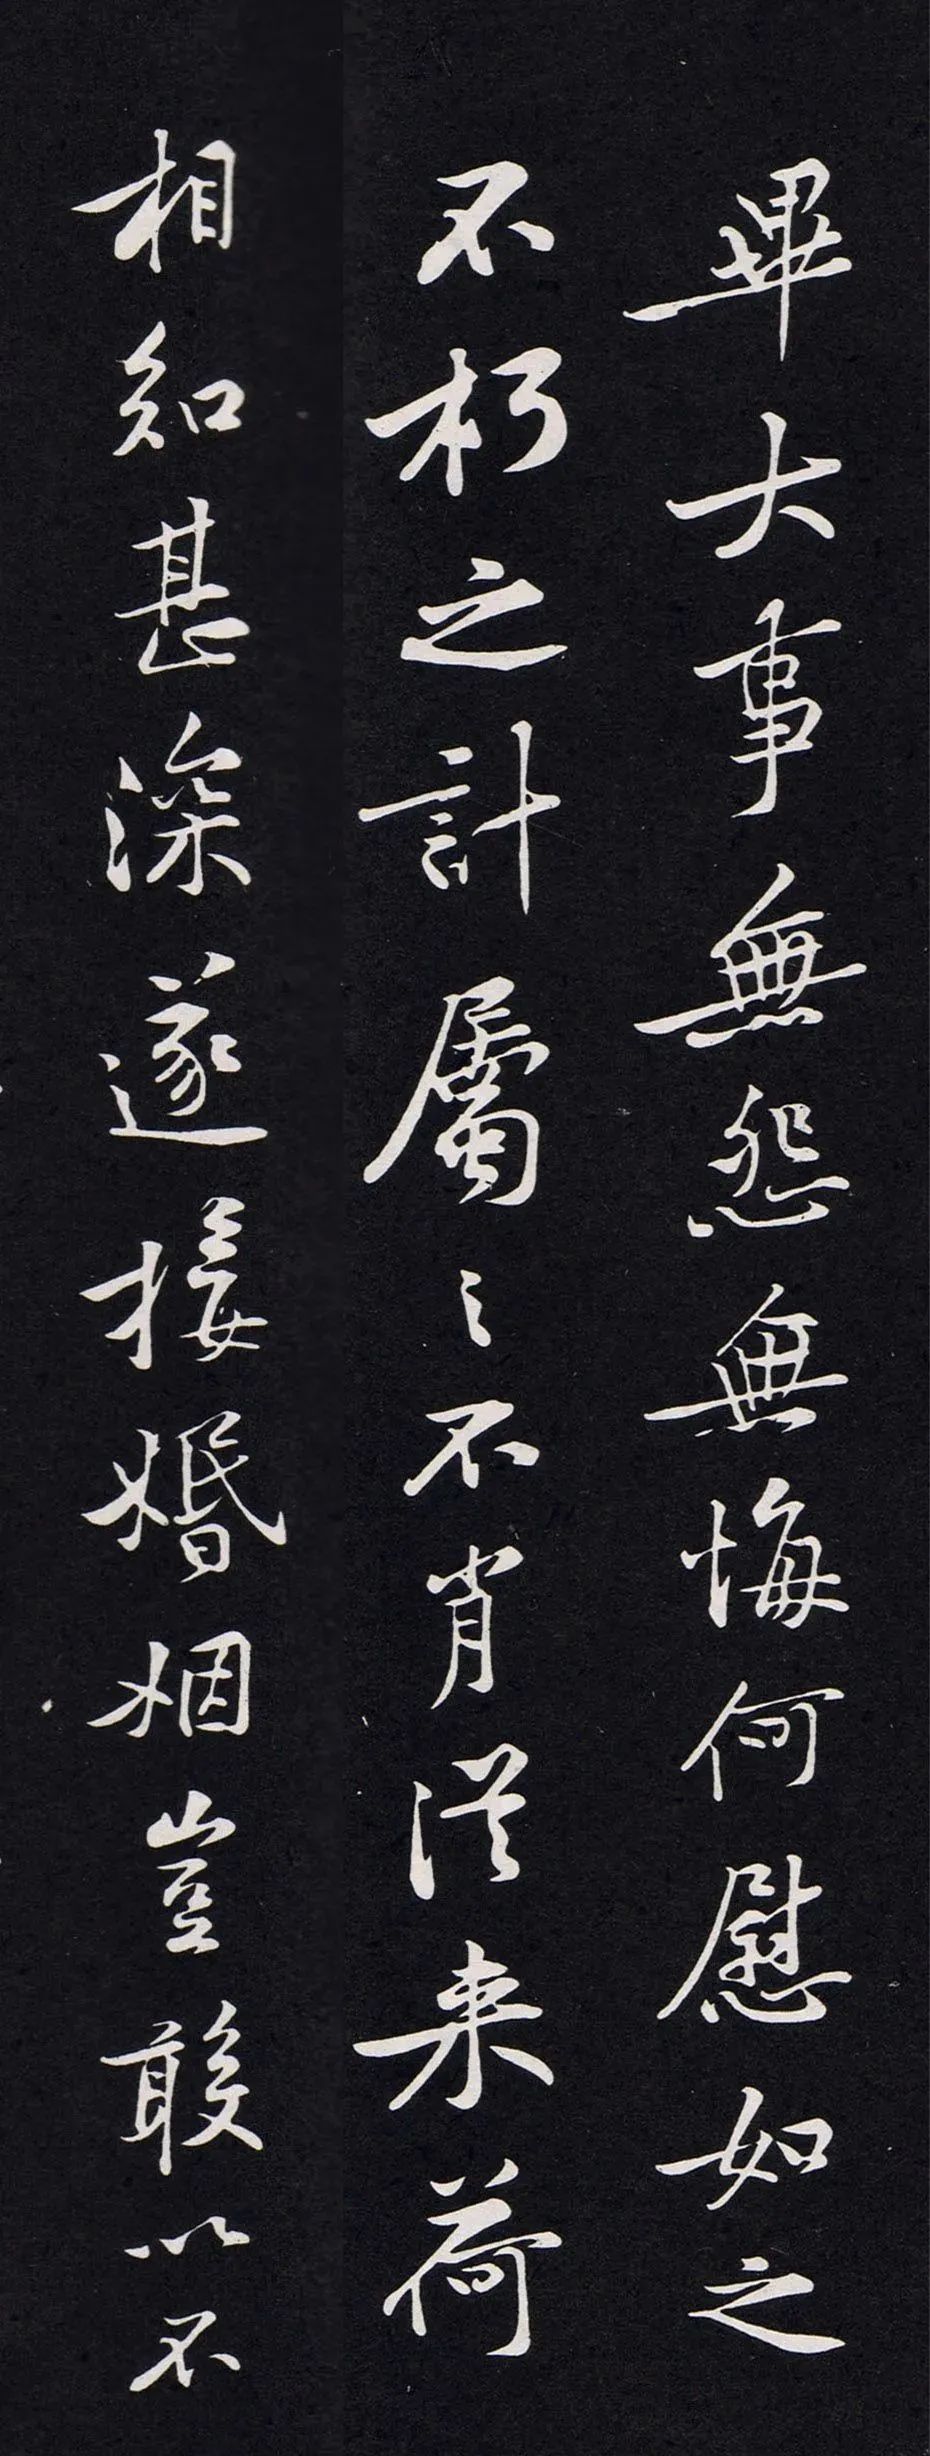 畢大事無怨無悔何慰如之
不朽之計屬之不肖從来荷
相知甚深遂接婚姻豈敢以不